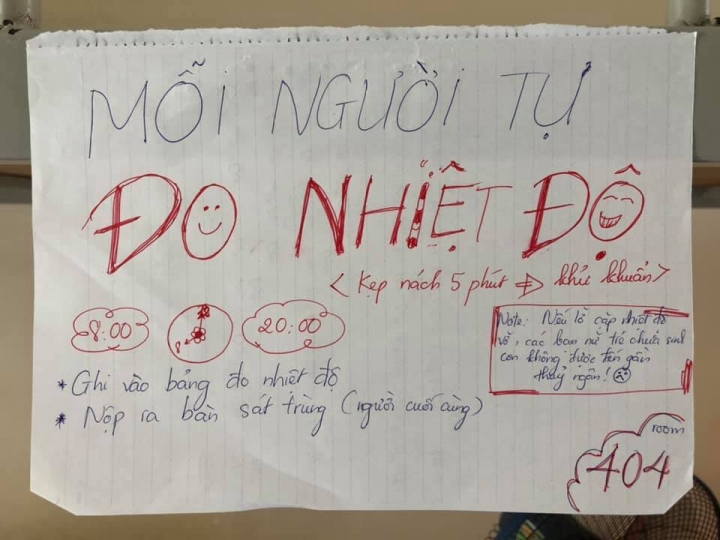 MỖI NGƯỜI TỰ
ĐO NHIỆT ĐỘ
<Kẹp nách 5 phút => khử khuẩn>
8:00
12
8
20:00
Note: Nếu lỡ cặp nhiệt độ
vỡ, các bạn nữ trẻ chưa sinh
con không được đến gần
thuỷ ngân!
* Ghi vào bảng đo nhiệt độ
* Nộp ra bàn sát trùng (người cuối cùng)
room
404